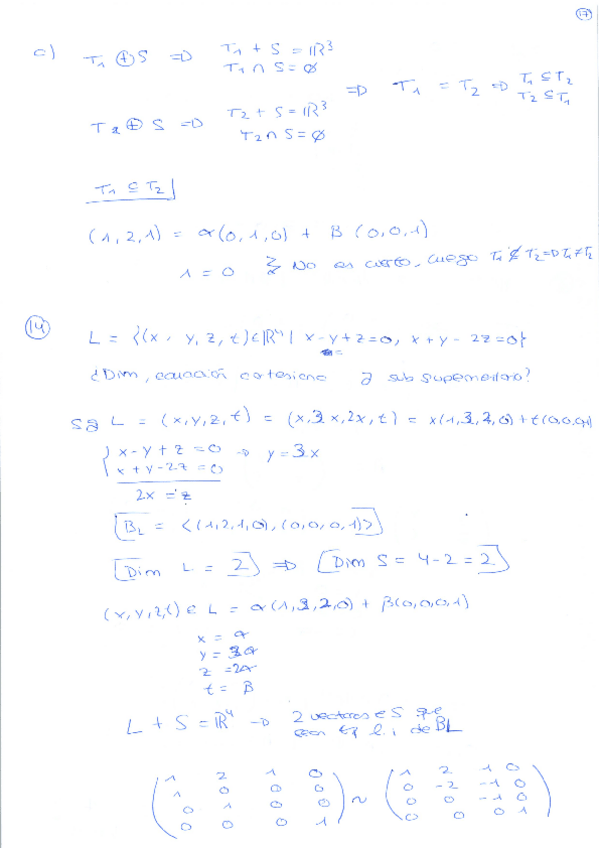 17
c) T₁ ⊕ S ⇒ T₁ + S = ℝ³
T₁ ∩ S = ∅
⇒ T₁ = T₂ ⇒ T₁ ⊆ T₂
T₂ ⊆ T₁
T₂ ⊕ S ⇒ T₂ + S = ℝ³
T₂ ∩ S = ∅
T₁ ⊆ T₂
(1,2,1) = α(0,1,0) + β(0,0,1)
1 = 0 } No es cierto, luego T₁ ⊈ T₂ ⇒ T₁ ≠ T₂
14 L = {(x, y, z, t) ∈ ℝ⁴ | x-y+z=0, x+y-2z=0}
¿Dim, ecuación cartesiana y sub suplementario?
L = (x,y,z,t) = (x,3x,2x,t) = x(1,3,2,0)+t(0,0,0,1)
{ x-y+z=0 → y=3x
x+y-2z=0
2x = z
B_L = <(1,2,1,0),(0,0,0,1)>
Dim L = 2 ⇒ Dim S = 4-2 = 2
(x,y,z,t) ∈ L = α(1,3,2,0) + β(0,0,0,1)
x = α
y = 3α
z = 2α
t = β
L + S = ℝ⁴ → 2 vectores ∈ S que
sean l.i de BL
( 1 2 1 0 ) ~ ( 1 2 1 0 )
( 1 0 0 0 ) ( 0 -2 -1 0 )
( 0 1 0 0 ) ( 0 0 -1 0 )
( 0 0 0 1 ) ( 0 0 0 1 )